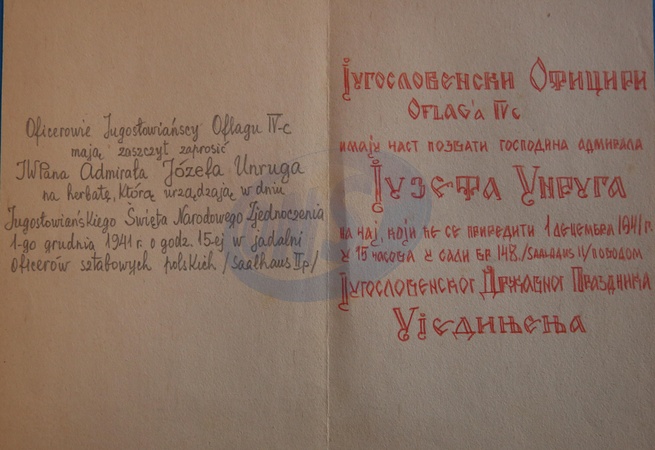 Oficerowie Jugosłowiańscy Oflagu IV-c
mają zaszczyt zaprosić
JWPana Admirała Józefa Unruga
na herbatę, którą urządzają w dniu
Jugosłowiańskiego Święta Narodowego Zjednoczenia
1-go grudnia 1941 r. o godz. 15-ej w jadalni
oficerów sztabowych polskich /Saalhaus II p/
Југословенски Официри
Oflag'a IVc
имају част позвати господина адмирала
Јузефа Унруга
на чај, који ће се приредити 1 децембра 1941 г.
у 15 часова у сали бр 148./Saalhaus II/ поводом
Југословенског Државног Празника
Уједињења